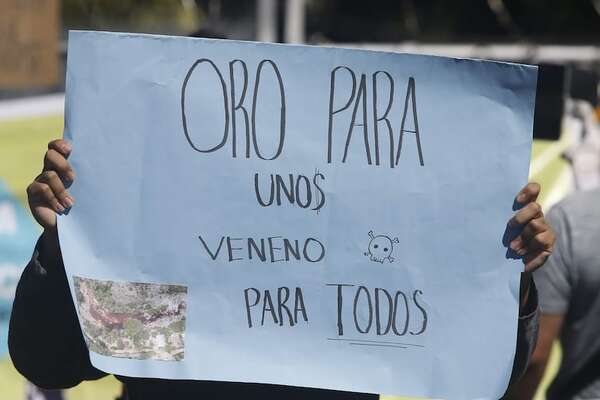 ORO PARA
UNO$
VENENO
PARA TODOS